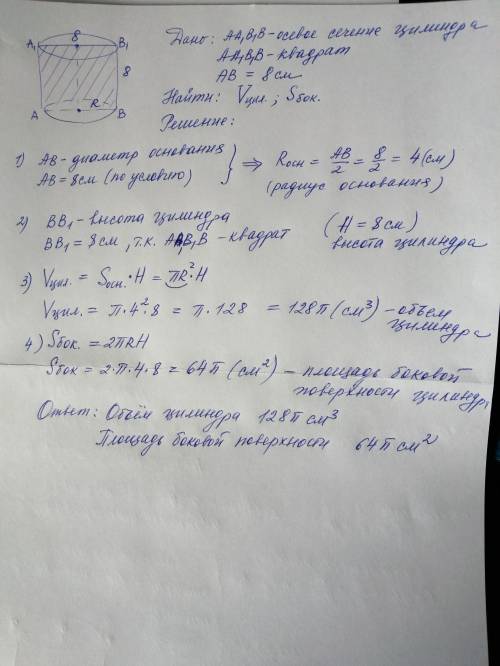 8
A₁ B₁
8
R
A B
Дано: AA₁B₁B - осевое сечение цилиндра
AA₁B₁B - квадрат
AB = 8 см
Найти: Vцил. ; Sбок.
Решение:
1) AB - диаметр основания
AB = 8см (по условию) } ⇒ Rосн = AB/2 = 8/2 = 4 (см)
(радиус основания)
2) BB₁ - высота цилиндра (H = 8 см)
BB₁ = 8 см, т.к. AA₁B₁B - квадрат высота цилиндра
3) Vцил. = Sосн. · H = πR² · H
Vцил. = π · 4² · 8 = π · 128 = 128π (см³) - объем
цилиндра
4) Sбок. = 2πRH
Sбок = 2 · π · 4 · 8 = 64π (см²) - площадь боковой
поверхности цилиндра
Ответ: Объём цилиндра 128π см³
Площадь боковой поверхности 64π см²